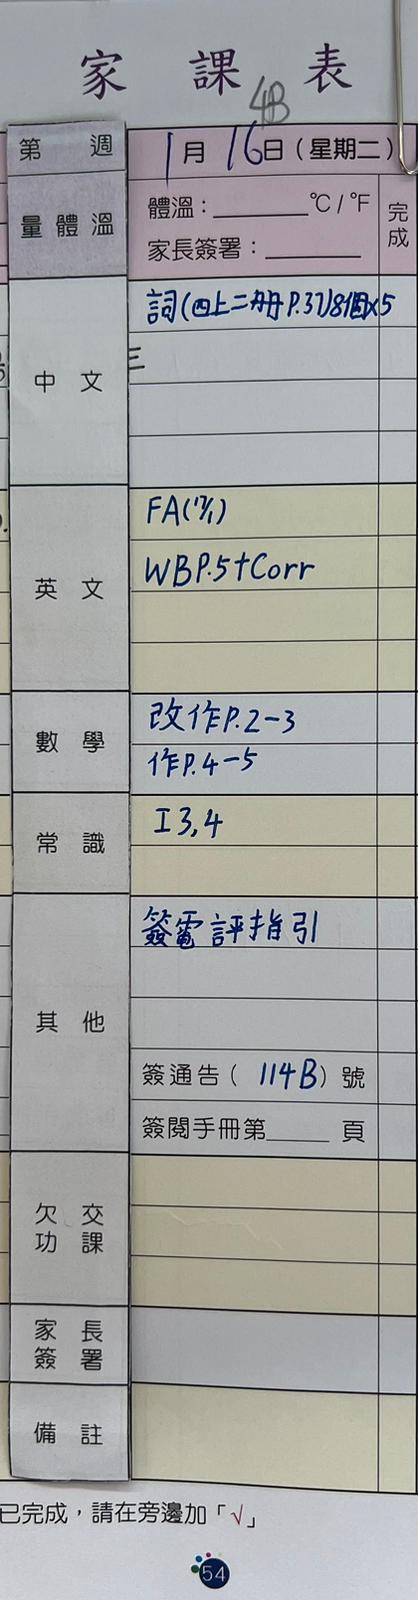 家課表
4B
第 週
1月16日(星期二)
量體溫
體溫:________°C/°F
家長簽署:________
完成
中文
詞(四上二册P.37)8個x5
三
英文
FA(17/1)
WBP.5+Corr
數學
改作P.2-3
作P.4-5
常識
I3,4
其他
簽電評指引
簽通告(114B)號
簽閱手冊第____頁
欠交功課
家長簽署
備註
已完成,請在旁邊加「√」
54